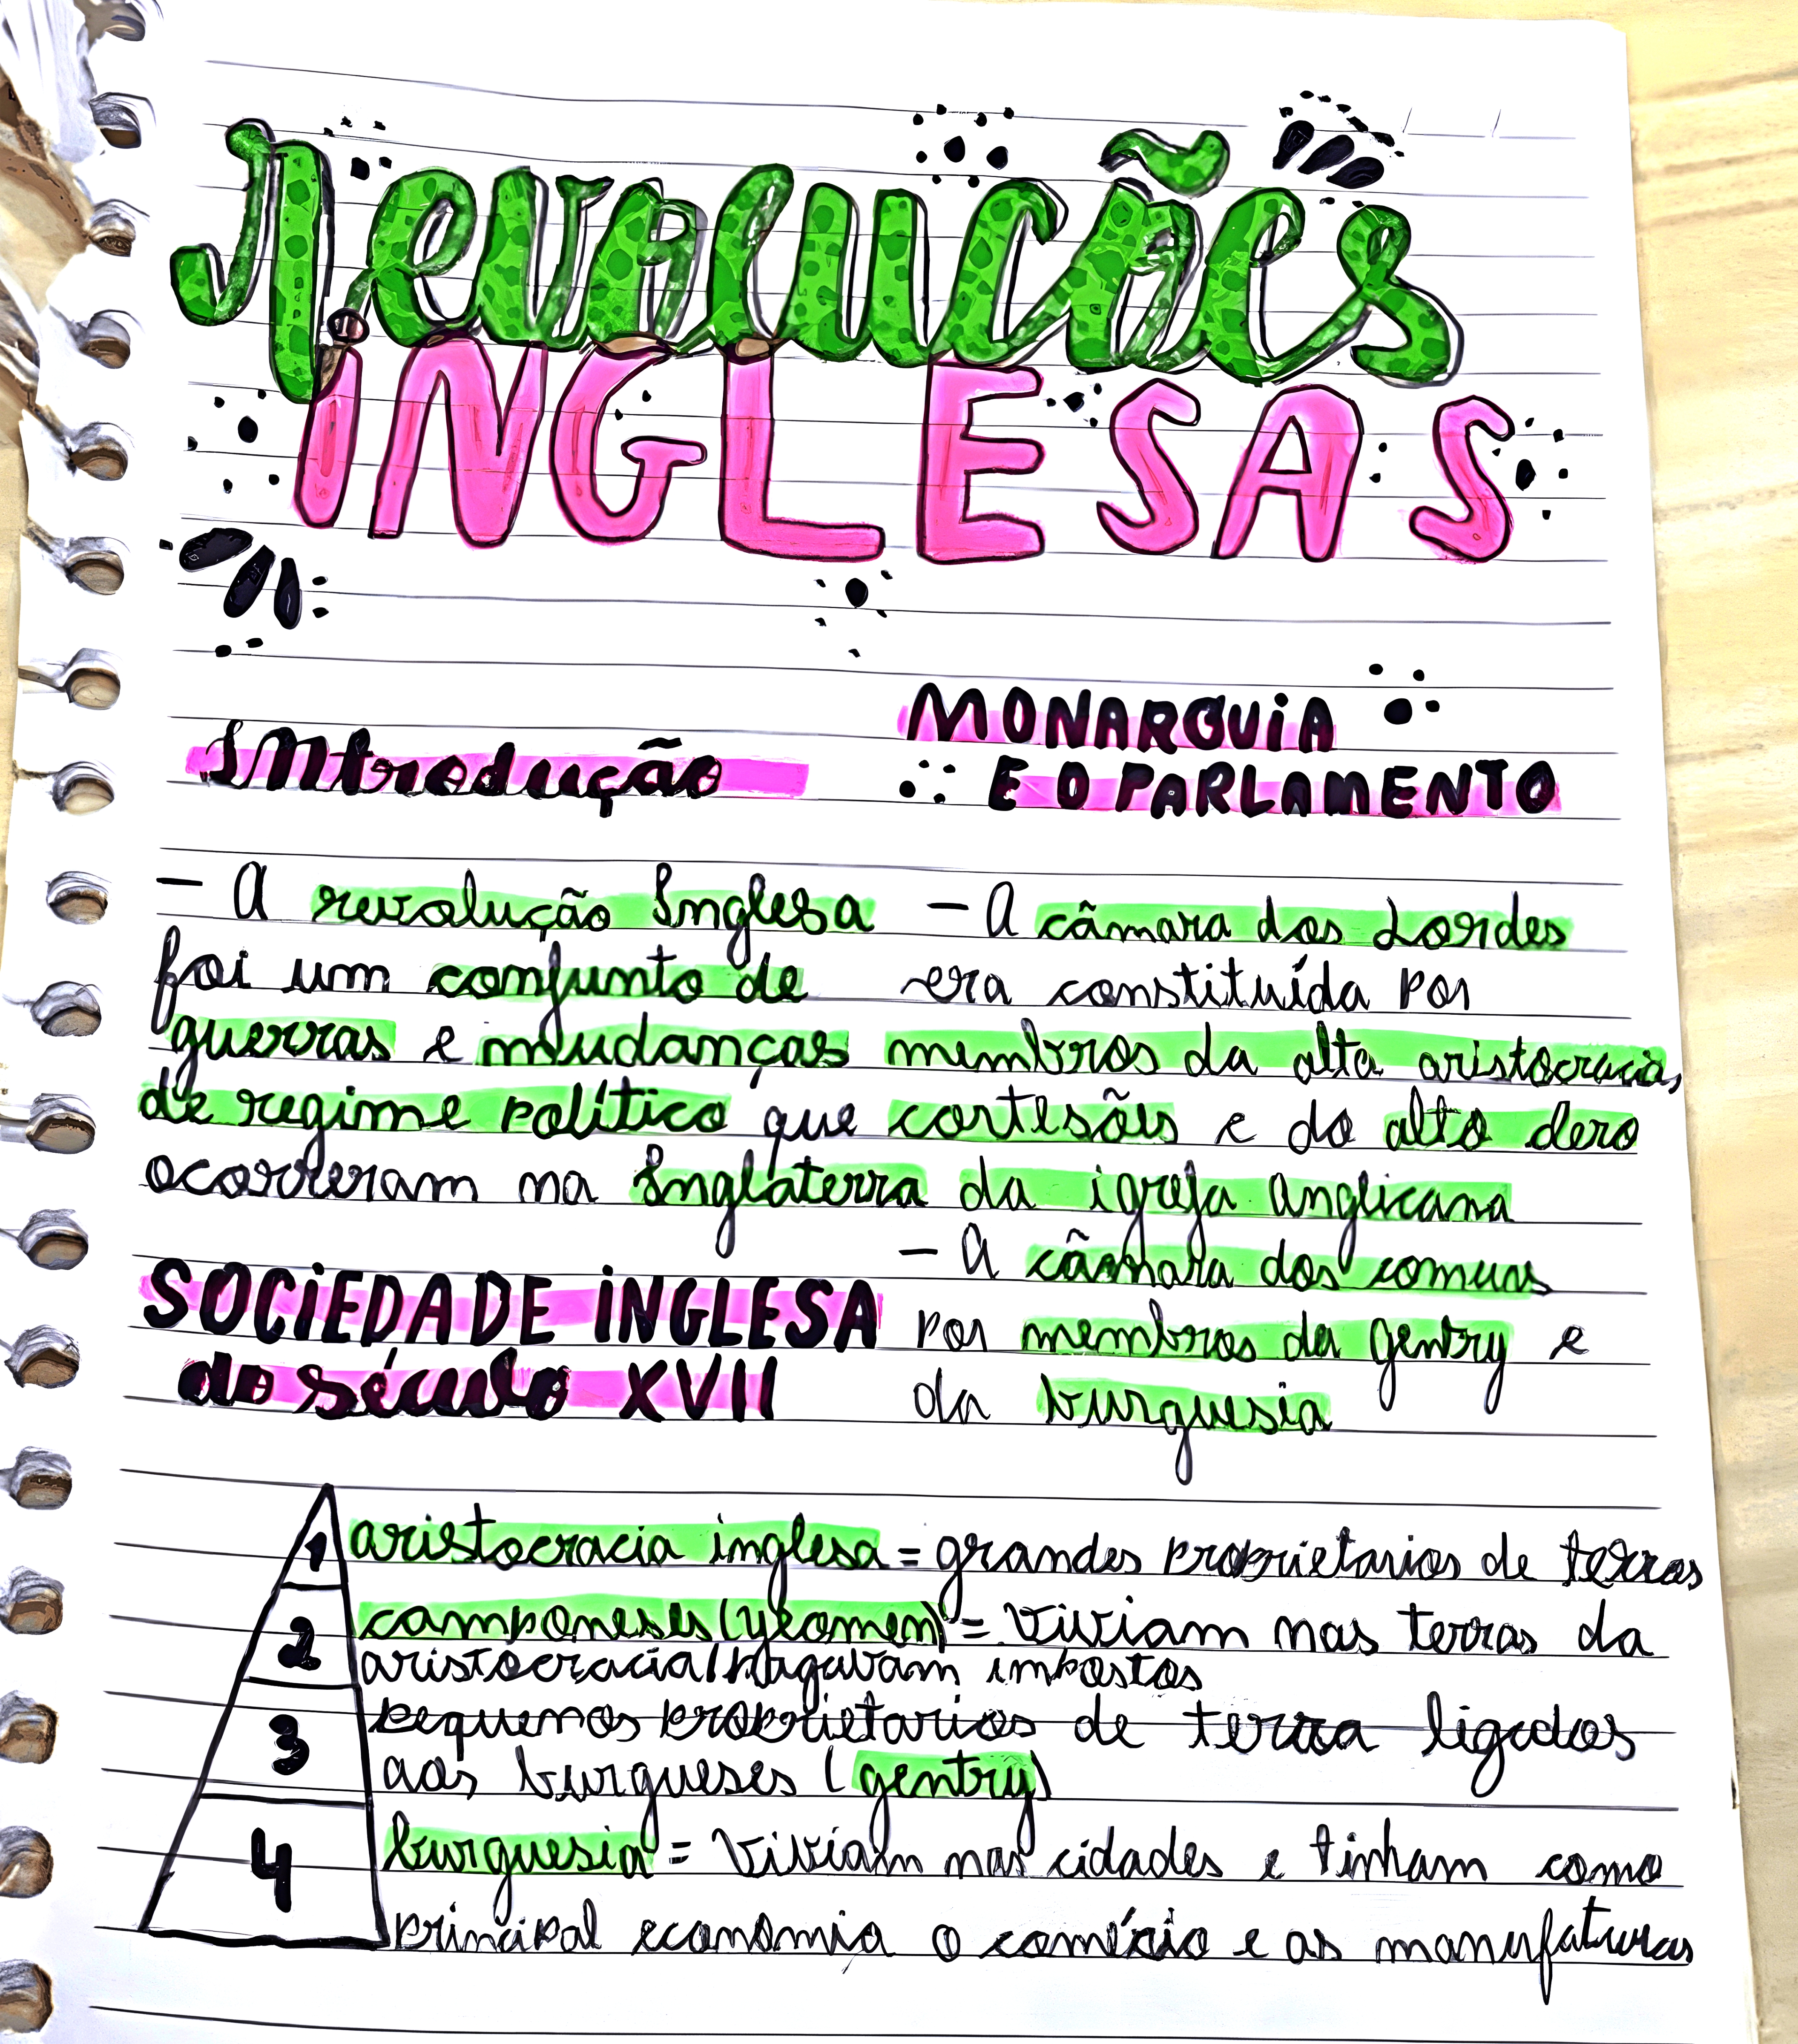 revoluções
iNGLESAS
INtrodução
- A revolução Inglesa
foi um conjunto de
guerras e mudanças
de regime político que
ocorreram na Inglaterra
MONARQUiA
E O PARLAMENTO
- A câmara dos Lordes
era constituída por
membros da alta aristocracia,
cortesãos e do alto clero
da igreja anglicana
- A câmara dos comuns
por membros da gentry e
da burguesia
SOCiEDADE iNGLESA
do século XVII
1 aristocracia inglesa = grandes proprietarios de terras
2 camponeses (yeomen) = viviam nas terras da
aristocracia/pagavam impostos
3 pequenos proprietarios de terra ligados
aos burgueses (gentry)
4 burguesia = viviam nas cidades e tinham como
principal economia o comércio e as manufaturas